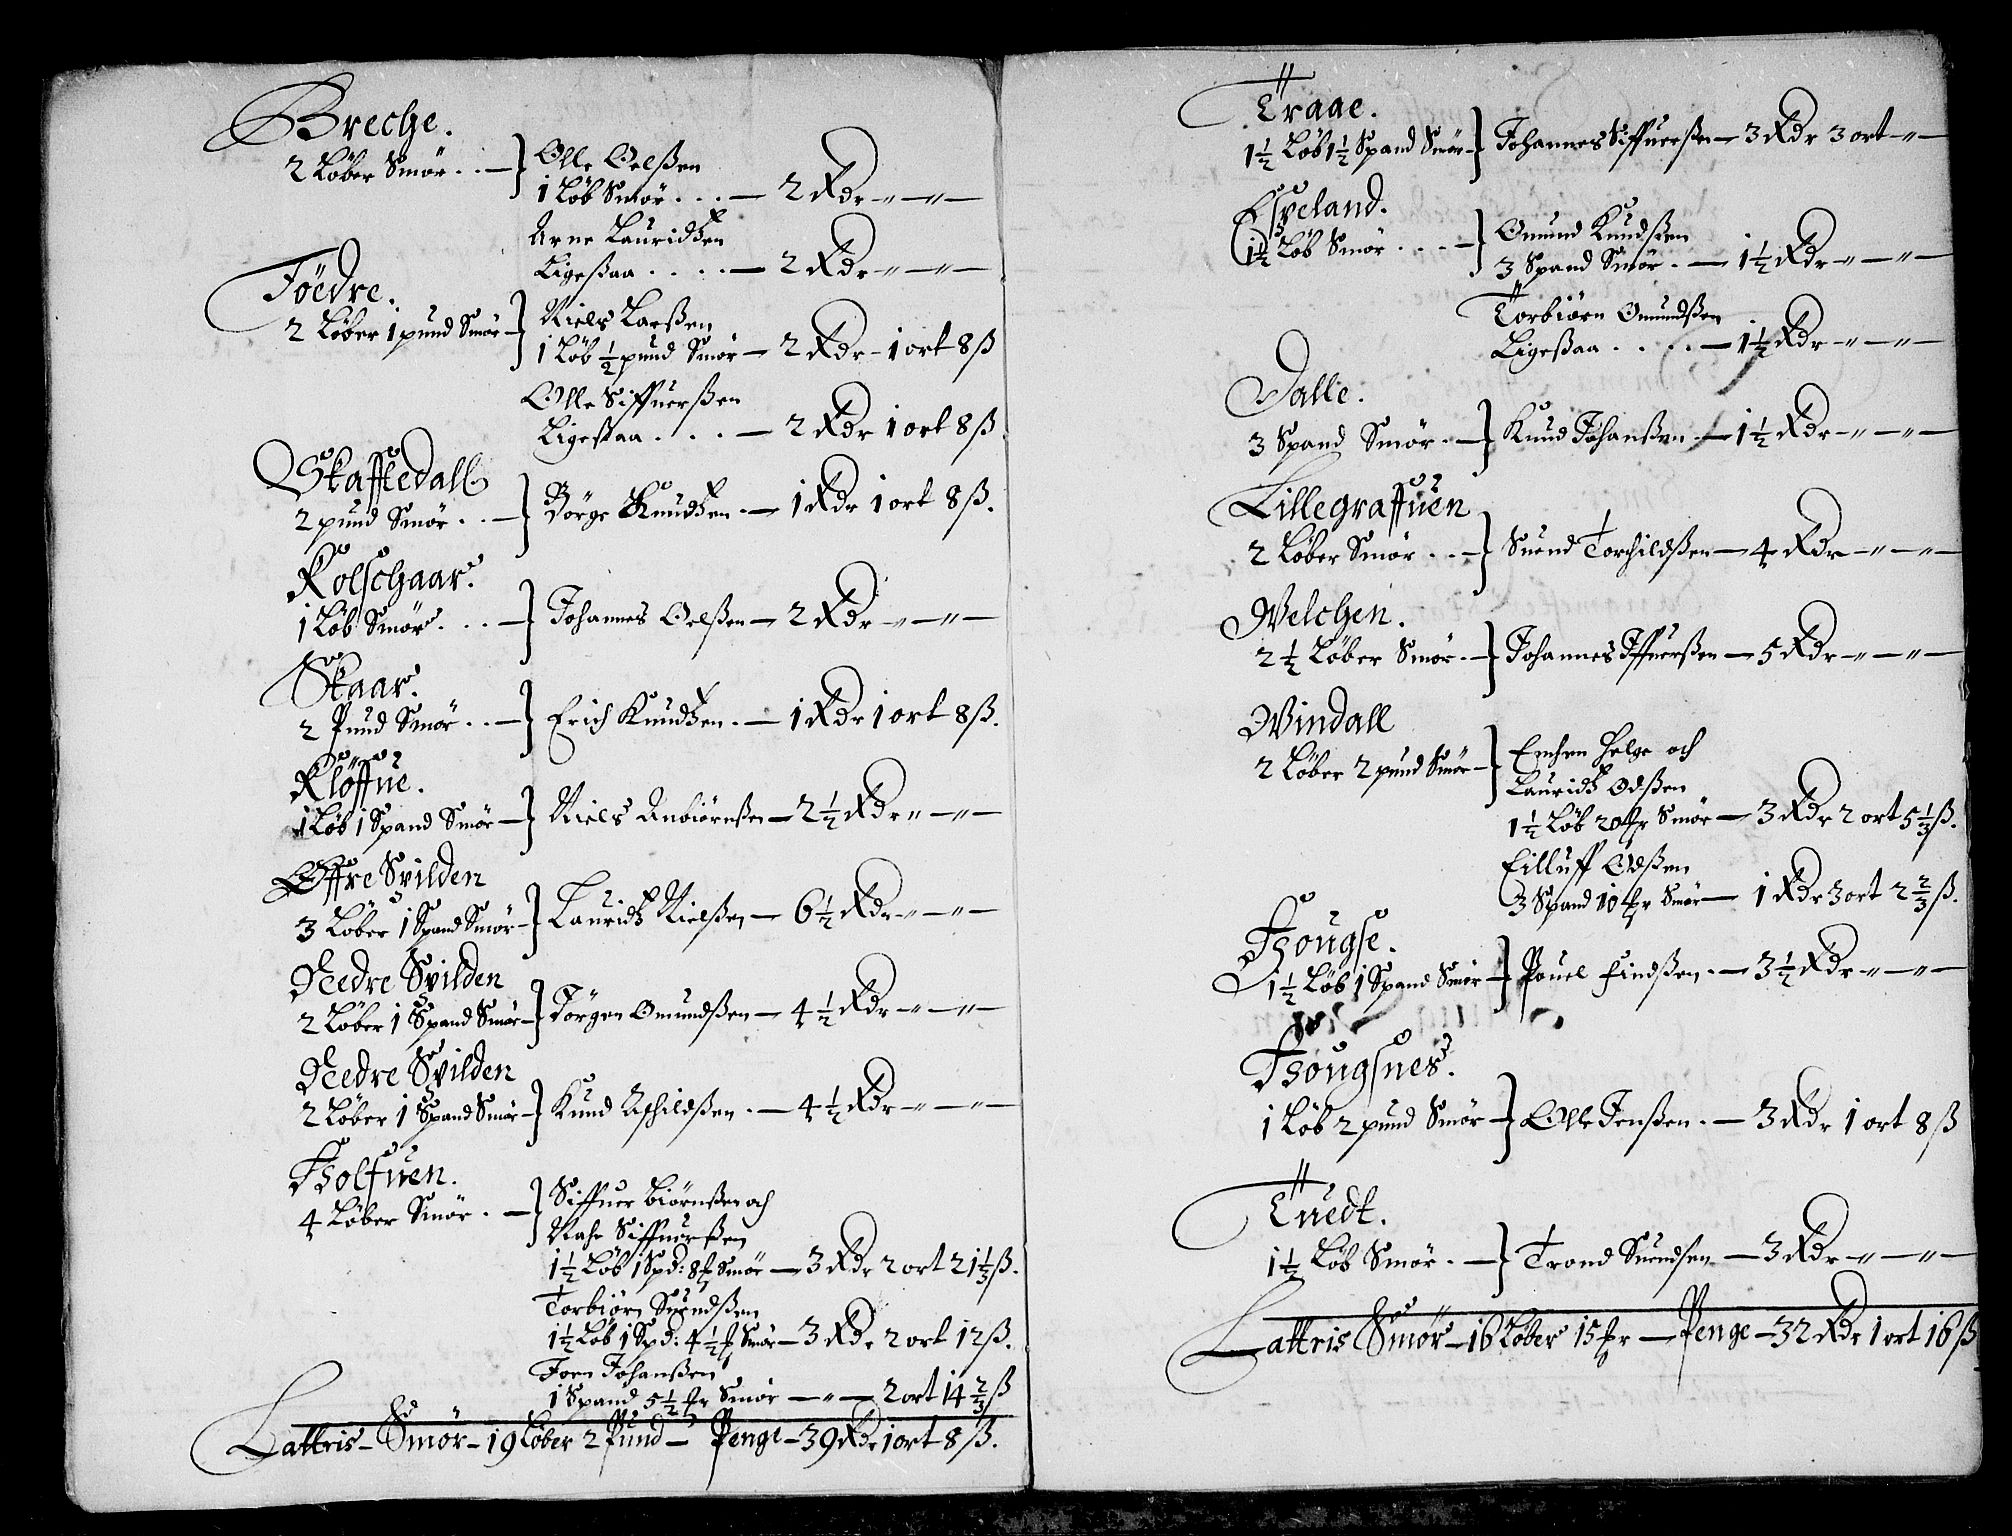 Breche.
2 Løber Smør . . — } Olle Oelßen
1 Løb Smør . . . — 2 Rdr — „ — „ —
Arne Lauridtzen
Ligeßaa . . . . — 2 Rdr — „ — „ —
Föedre.
2 Løber 1 pund Smør — } Niels Larßen
1 Løb ½ pund Smør — 2 Rdr — 1 ort 8 ß
Olle Siffuerßen
Ligeßaa . . . — 2 Rdr 1 ort 8 ß
Skaffledall
2 pund Smør . . — } Börge Knudtzen . — 1 Rdr 1 ort 8 ß.
Rolschaar.
1 Løb Smør . . . — } Johannes Oelßen — 2 Rdr — „ — „ —
Skaar.
2 Pund Smør . . — } Erich Knudtzen . — 1 Rdr 1 ort 8 ß.
Klöffue.
1 Løb 1 Spand Smør — } Niels Anbiørnßen — 2 ½ Rdr „ — „ —
Öffre Svilden
3 Løber 1 Spand Smør — } Lauridtz Nielßen — 6 ½ Rdr — „ — „ —
Needre Svilden
2 Løber 1 Spand Smør — } Jörgen Omundßen — 4 ½ Rdr — „ — „ —
Needre Svilden
2 Løber 1 Spand Smør — } Knud Aschildßen . — 4 ½ Rdr — „ — „ —
Holfuen.
4 Løber Smør . — } Siffuer Biørnßen och
Siffuerßen
1 ½ Løb 1 Spd: 8 Smør — 3 Rdr 2 ort 21 ⅓ ß.
Torbiørn Suendßen
1 ½ Løb 1 Spd: 4 ½ Smør — 3 Rdr 2 ort 12 ß.
Joen Johanßen
1 Spand 5 ½ Smør — „ — 2 ort 14 ⅔ ß
Lattris — Smør — 19 Løber 2 Pund — Penge — 39 Rdr 1 ort 8 ß.
Traae.
1 ½ Løb 1 ½ Spand Smør — } Johannes Siffuerßen — 3 Rdr 3 ort — „ —
Espeland.
1 ½ Løb Smør . . . — } Omund Knudßen
3 Spand Smør . — 1 ½ Rdr — „ — „ —
Torbiørn Omundßen
Ligeßaa . . . . — 1 ½ Rdr — „ — „ —
Dalle.
3 Spand Smør . — } Knud Johanßen . — 1 ½ Rdr — „ — „ —
Lillegraffuen
2 Løber Smør . . — } Suend Torchildßen — 4 Rdr — „ — „ —
Welchen.
2 ½ Løber Smør . — } Johannes Iffuerßen — 5 Rdr — „ — „ —
Windall
2 Løber 2 pund Smør — } Enchen Helge och
Lauridtz Odßen
1 ½ Løb 20 Smør — 3 Rdr 2 ort 5 ⅓ ß.
Eilluff Odßen
3 Spand 10 Smør — 1 Rdr 3 ort 2 ⅔ ß.
Hougse.
1 ½ Løb 1 Spand Smør — } Pouel Findßen . — 3 ½ Rdr — „ — „ —
Hougsnes.
1 Løb 2 pund Smør — } Olle Jenßen . — 3 Rdr 1 ort 8 ß
Tuedt.
1 ½ Løb Smør . — } Trond Suendsen — 3 Rdr — „ — „ —
Lattris Smør — 16 Løber 15 — Penge — 32 Rdr 1 ort 16 ß